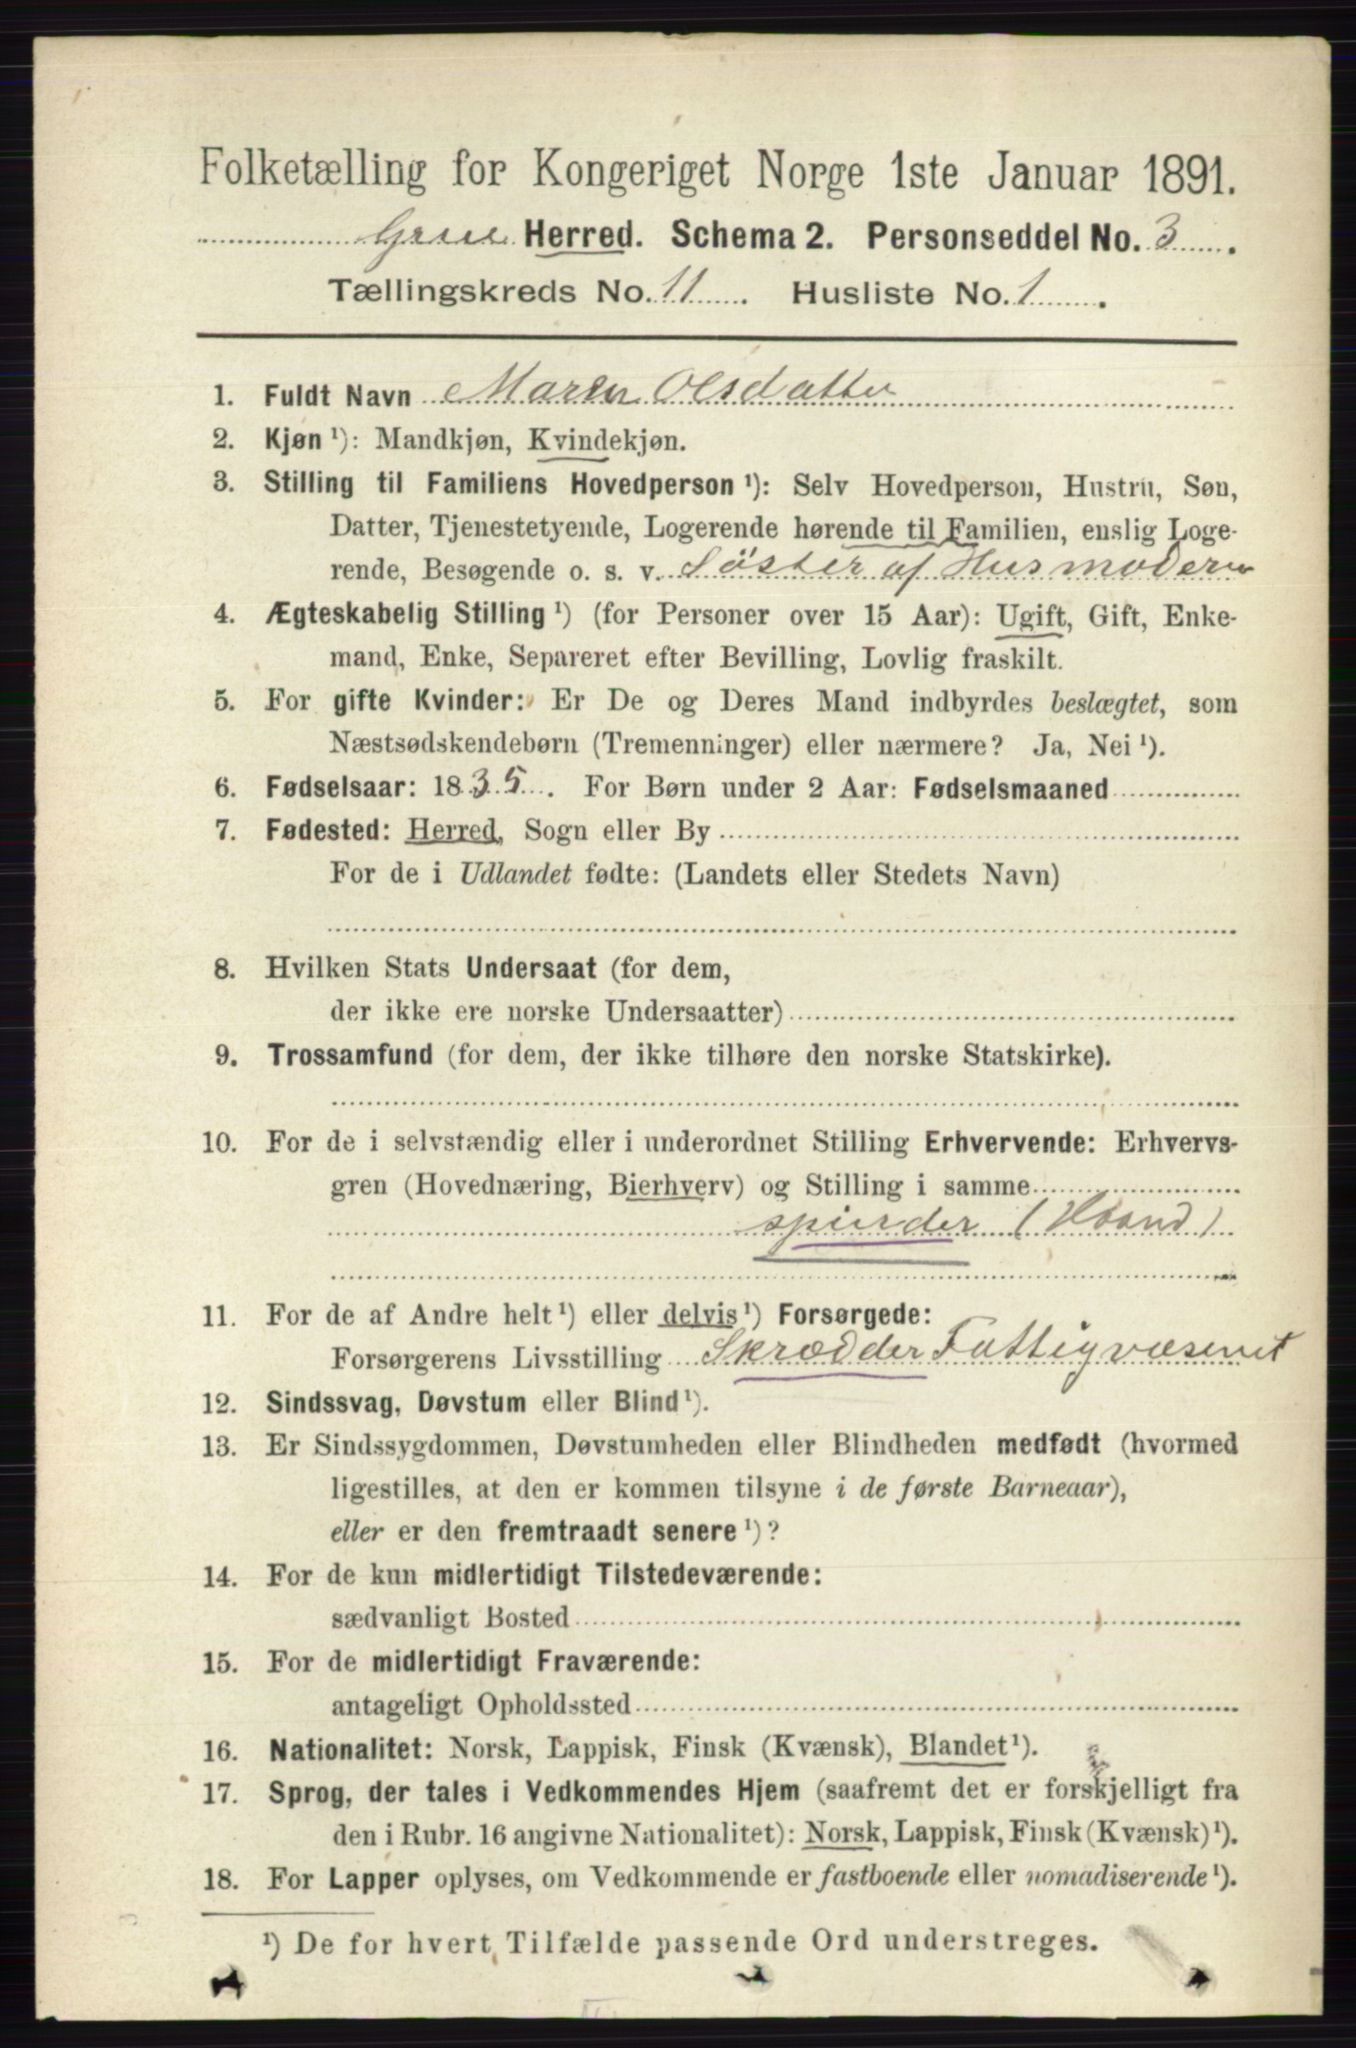 Folketælling for Kongeriget Norge 1ste Januar 1891.
Grue Herred. Schema 2. Personseddel No. 3.
Tællingskreds No. 11. Husliste No. 1.
1. Fuldt Navn Maren Olsdatter
2. Kjøn ¹): Mandkjøn, Kvindekjøn.
3. Stilling til Familiens Hovedperson ¹): Selv Hovedperson, Hustru, Søn,
Datter, Tjenestetyende, Logerende hørende til Familien, enslig Loge-
rende, Besøgende o. s. v. Söster af Husmoderen
4. Ægteskabelig Stilling ¹) (for Personer over 15 Aar): Ugift, Gift, Enke-
mand, Enke, Separeret efter Bevilling, Lovlig fraskilt.
5. For gifte Kvinder: Er De og Deres Mand indbyrdes beslægtet, som
Næstsødskendebørn (Tremenninger) eller nærmere? Ja, Nei ¹).
6. Fødselsaar: 1835. For Børn under 2 Aar: Fødselsmaaned
7. Fødested: Herred, Sogn eller By
For de i Udlandet fødte: (Landets eller Stedets Navn)
8. Hvilken Stats Undersaat (for dem,
der ikke ere norske Undersaatter)
9. Trossamfund (for dem, der ikke tilhøre den norske Statskirke).
10. For de i selvstændig eller i underordnet Stilling Erhvervende: Erhvervs-
gren (Hovednæring, Bierhverv) og Stilling i samme
spinder (Haand)
11. For de af Andre helt ¹) eller delvis ¹) Forsørgede:
Forsørgerens Livsstilling Skrædder Fattigvæsenet
12. Sindssvag, Døvstum eller Blind ¹).
13. Er Sindssygdommen, Døvstumheden eller Blindheden medfødt (hvormed
ligestilles, at den er kommen tilsyne i de første Barneaar),
eller er den fremtraadt senere ¹)?
14. For de kun midlertidigt Tilstedeværende:
sædvanligt Bosted
15. For de midlertidigt Fraværende:
antageligt Opholdssted
16. Nationalitet: Norsk, Lappisk, Finsk (Kvænsk), Blandet ¹).
17. Sprog, der tales i Vedkommendes Hjem (saafremt det er forskjelligt fra
den i Rubr. 16 angivne Nationalitet): Norsk, Lappisk, Finsk (Kvænsk) ¹).
18. For Lapper oplyses, om Vedkommende er fastboende eller nomadiserende ¹).
¹) De for hvert Tilfælde passende Ord understreges.